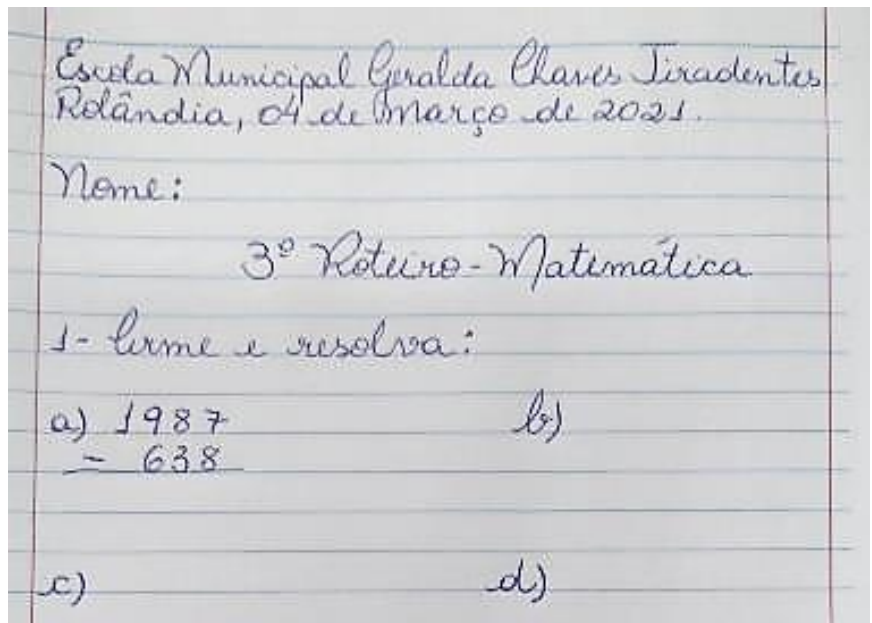 Escola Municipal Geralda Chaves Tiradentes
Rolândia, 04 de Março de 2021.
Nome:
3º Roteiro - Matemática
1- Arme e resolva:
a) 1987 b)
- 638
c) d)